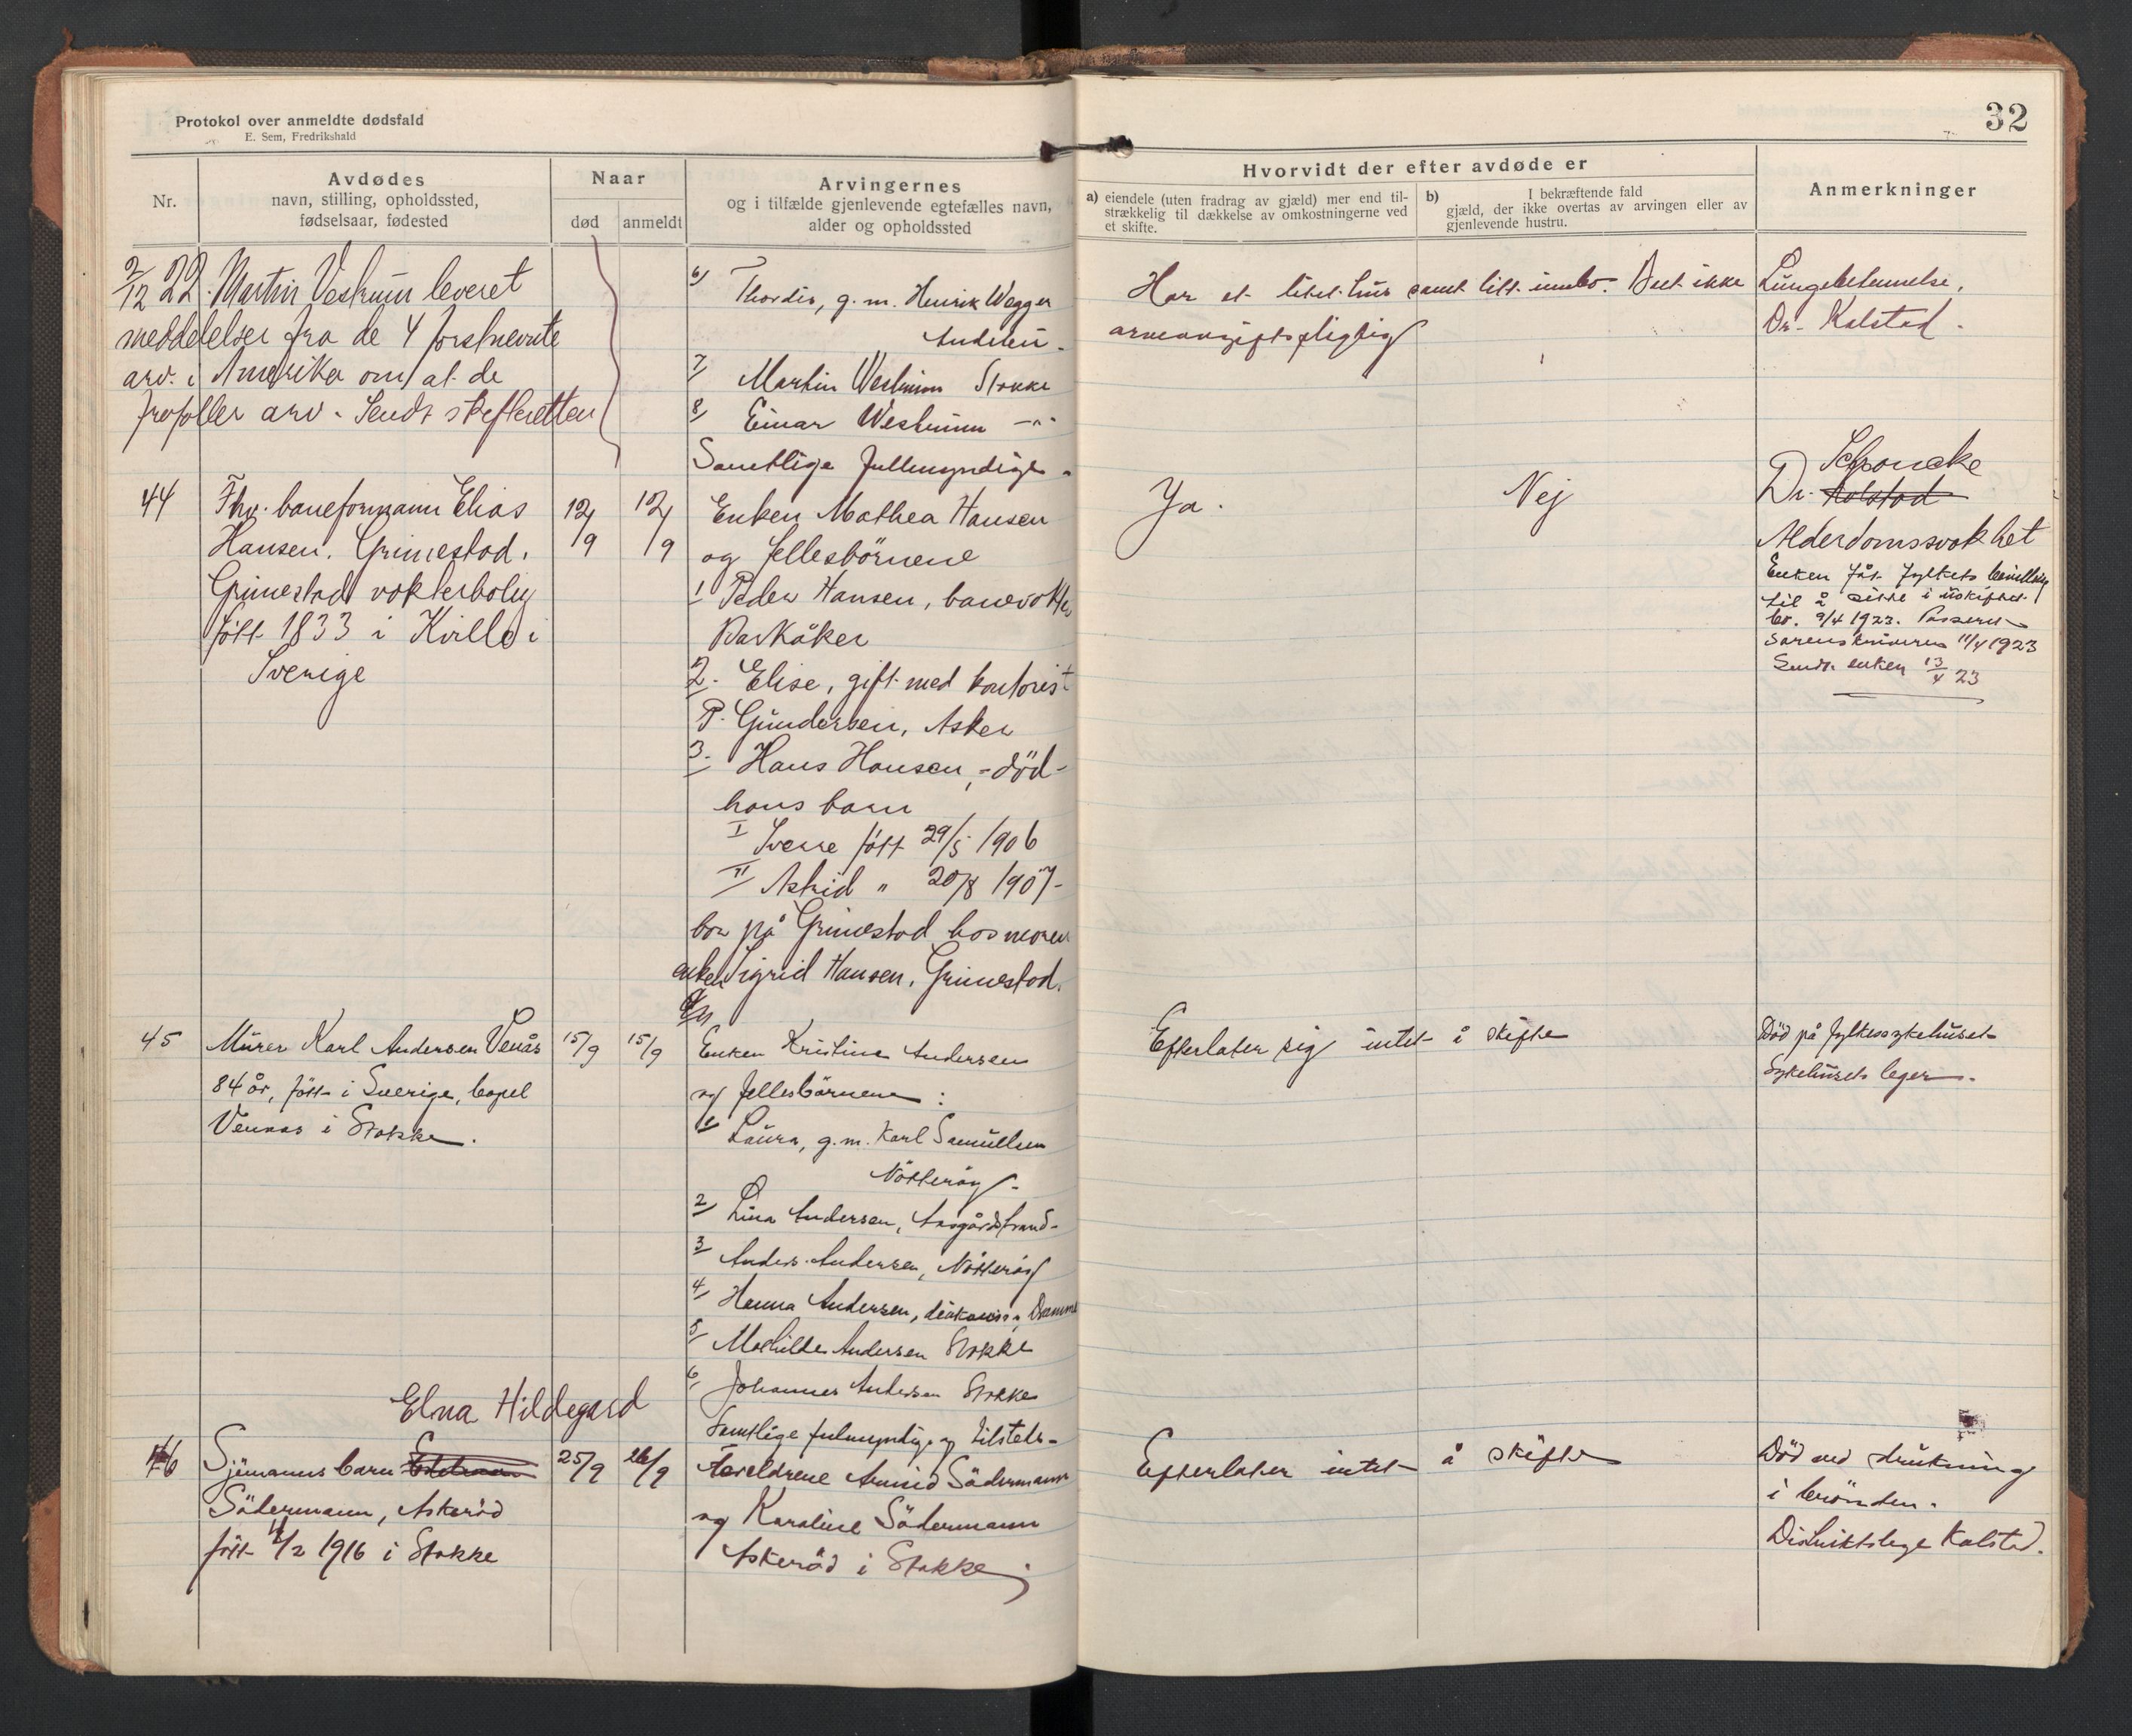 Protokol over anmeldte dødsfald
E. Sem, Fredrikshald
32
Nr.
Avdødes
navn, stilling, opholdssted,
fødselsaar, fødested
Naar
død
anmeldt
Arvingernes
og i tilfælde gjenlevende egtefælles navn,
alder og opholdssted
Hvorvidt der efter avdøde er
a) eiendele (uten fradrag av gjæld) mer end til-
strækkelig til dækkelse av omkostningerne ved
et skifte.
b) I bekræftende fald
gjæld, der ikke overtas av arvingen eller av
gjenlevende hustru.
Anmerkninger
2/12 22. Martin Vestrum leveret
meddelelser fra de 4 förstnevnte
arv. i Amerika om at de
frafaller arv. Sendt skifteretten
6/ Thordis, g. m. Henrik Wegger
Andersen.
7/ Martin Westrum Stokke
8/ Einar Westrum -"-
Samtlige fullmyndige.
Har et litet hus samt litt innbo. Boet ikke
arveavgiftspligtig
Lungebetennelse.
Dr. Kalstad.
44
Fhv. baneformann Elias
Hansen. Grimestad.
Grimestad vokterbolig
født 1833 i Kville i
Sverige
12/9
12/9
Enken Mathea Hansen
og fellesbörnene
1 Peder Hansen, banevokter
Barkåker
2. Elise, gift med kontorist
P. Gundersen, Asker
3. Hans Hansen, - död -
hans barn
I Sverre född 29/5 1906
II Astrid " 20/8 1907-
bor på Grimestad hos moren
enken Sigrid Hansen, Grimestad.
Ja.
Nej
Schroncke
Dr. Kolstad
Alderdomssvakhet
Enken fåt fylkets bevilling
til å sitte i uskiftet
bo. 9/4 1923. Passert
sorenskriveren 11/4 1923
Sendt enken 13/4 23
45
Murer Karl Andersen Venås
84 år, född i Sverige, bopel
Vennas i Stokke.
15/9
15/9
Enken Kristine Andersen
og fellesbörnene:
1 Laura, g. m. Karl Samuelsen
Nötteröy.
2/ Lina Andersen, Aasgårdstrand.
3 Anders Andersen, Nötteröy
4/ Hanna Andersen, diakonisse, Dramm
5/ Mathilde Andersen Stokke
6/ Johannes Andersen Stokke
Samtlige fulmyndige og tilstede.
Efterlater sig intet å skifte
Död på fylkessykehuset
Sykehusets leger.
Elna Hildegard
46
Sjömanns barn
Södermann, Askeröd
född /2 1916 i Stokke
25/9
26/9
Foreldrene Arvid Södermann
og Karoline Södermann
Askeröd i Stokke
Efterlater intet å skifte
Död ved drukning
i brönden.
Distriktslege Kalstad.